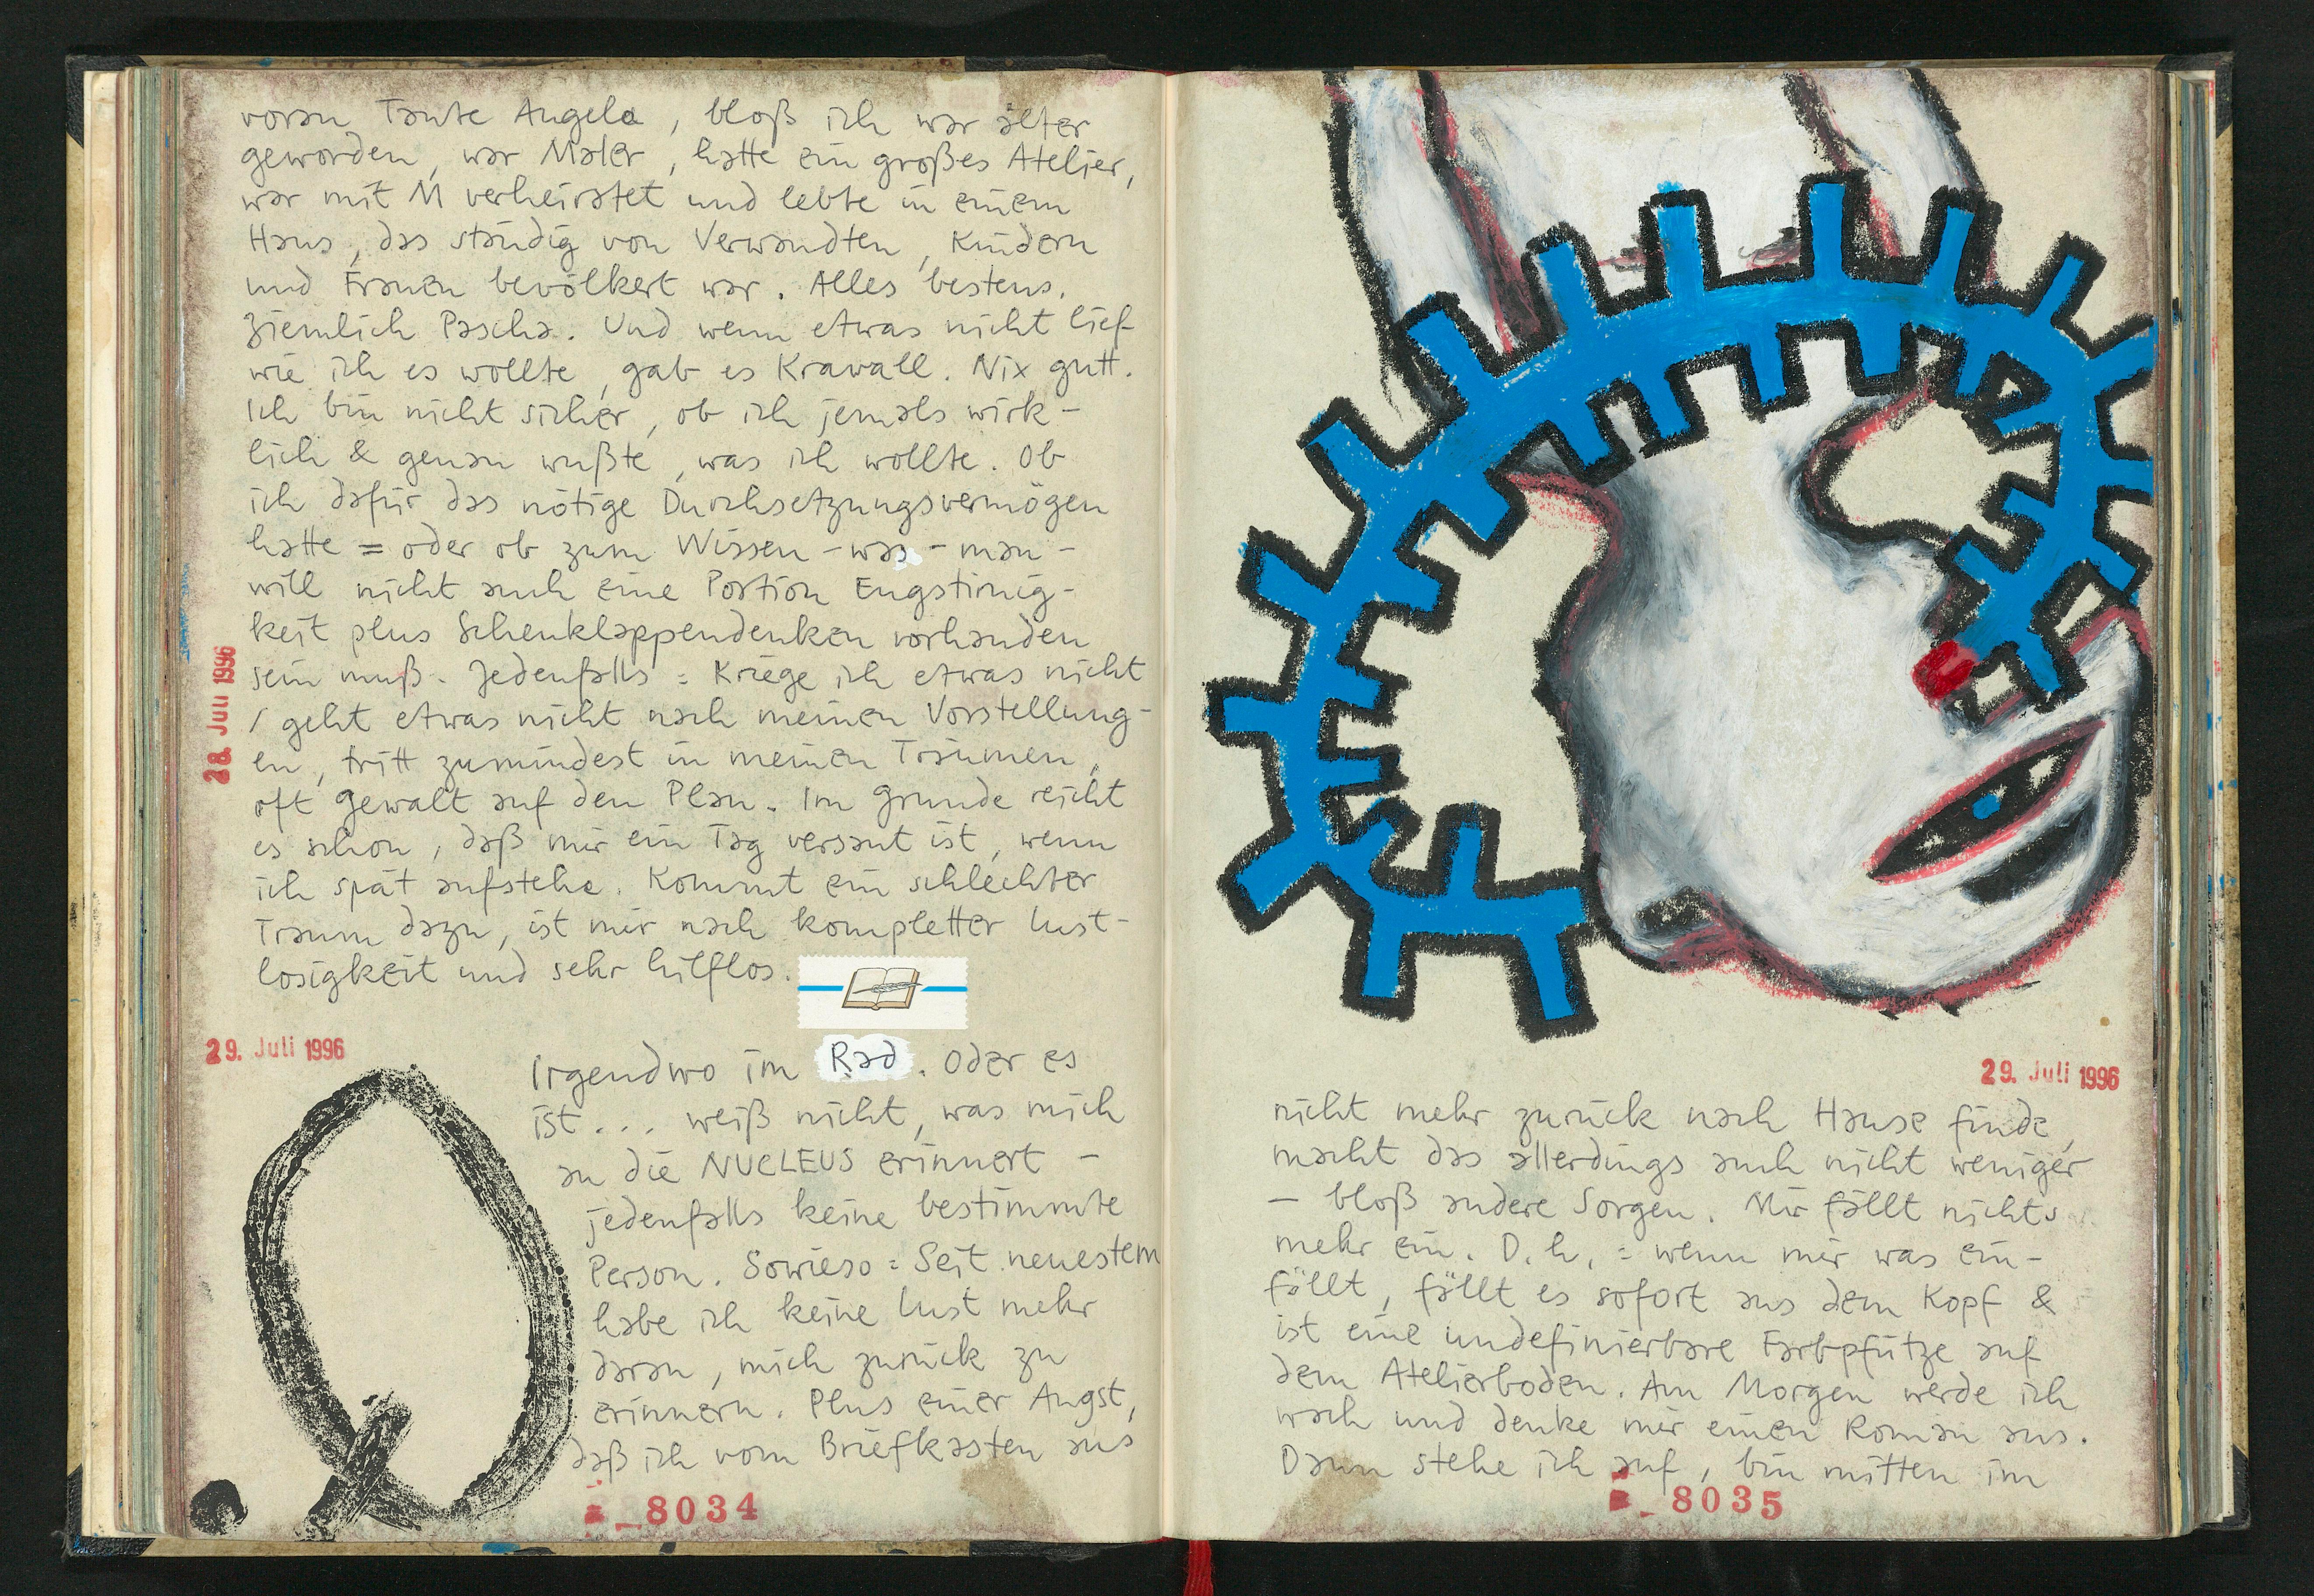 voran Tante Angela, bloß ich war älter
geworden, war Maler, hatte ein großes Atelier,
war mit M verheiratet und lebte in einem
Haus, das ständig von Verwandten, Kindern
und Frauen bevölkert war. Alles bestens.
Ziemlich Pascha. Und wenn etwas nicht lief
wie ich es wollte, gab es Krawall. Nix gutt.
Ich bin nicht sicher, ob ich jemals wirk-
lich & genau wußte, was ich wollte. Ob
ich dafür das nötige Durchsetzungsvermögen
hatte = oder ob zum Wissen-was-man-
will nicht auch eine Portion Engstirnig-
keit plus Scheuklappendenken vorhanden
sein muß. Jedenfalls: Kriege ich etwas nicht
/ geht etwas nicht nach meinen Vorstellung-
en, tritt zumindest in meinen Träumen,
oft Gewalt auf den Plan. Im Grunde reicht
es schon, daß mir ein Tag versaut ist, wenn
ich spät aufstehe. Kommt ein schlechter
Traum dazu, ist mir nach kompletter Lust-
losigkeit und sehr hilflos.
28. Juli 1996
29. Juli 1996
Q
Irgendwo im Rad. Oder es
ist... weiß nicht, was mich
an die NUCLEUS erinnert -
jedenfalls keine bestimmte
Person. Sowieso: Seit neuestem
habe ich keine Lust mehr
daran, mich zurück zu
erinnern. Plus einer Angst,
daß ich vom Briefkasten aus
_8034
29. Juli 1996
nicht mehr zurück nach Hause finde,
macht das allerdings auch nicht weniger
- bloß andere Sorgen. Mir fällt nichts
mehr ein. D.h.: wenn mir was ein-
fällt, fällt es sofort aus dem Kopf &
ist eine undefinierbare Farbpfütze auf
dem Atelierboden. Am Morgen werde ich
wach und denke mir einen Roman aus.
Dann stehe ich auf, bin mitten im
_8035